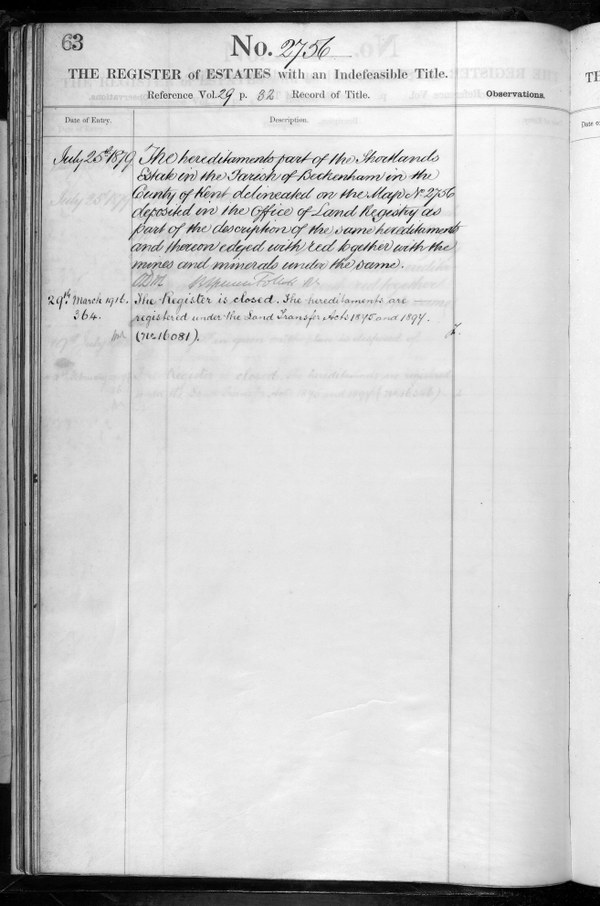 63
No. 2756
THE REGISTER of ESTATES with an Indefeasible Title.
Reference Vol. 29 p. 32 Record of Title.
Observations.
Date of Entry.
Description.
July 25th 1879
The hereditaments part of the Shortlands
Estate in the Parish of Beckenham in the
County of Kent delineated on the Map No 2756
deposited in the Office of Land Registry as
part of the description of the same hereditaments
and thereon edged with red together with the
mines and minerals under the same.
29th March 1916.
364.
The Register is closed. The hereditaments are
registered under the Land Transfer Acts 1875 and 1897.
(No 16081).
TH
Date o